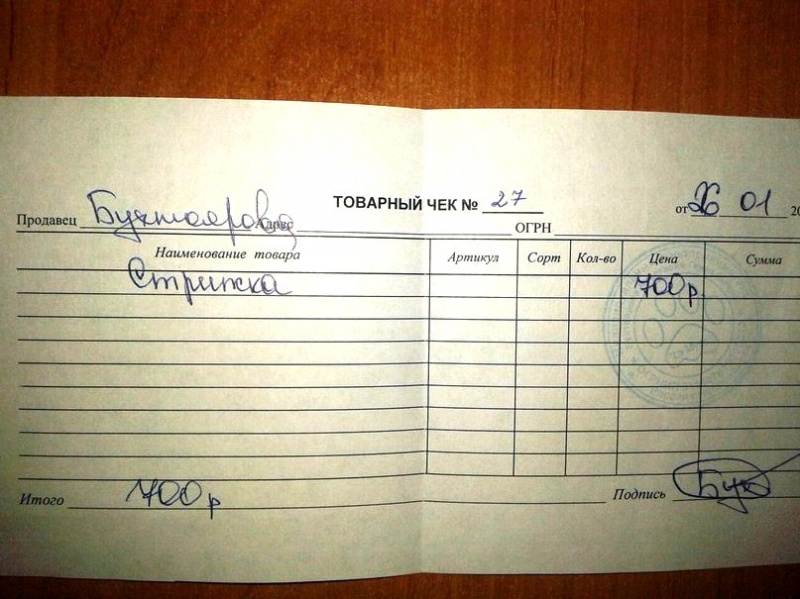 ТОВАРНЫЙ ЧЕК № 27 от 26 01 20
Продавец Бухтоярова Адрес ОГРН
Наименование товара Артикул Сорт Кол-во Цена Сумма
Стрижка 700р
Итого 700р Подпись Бух